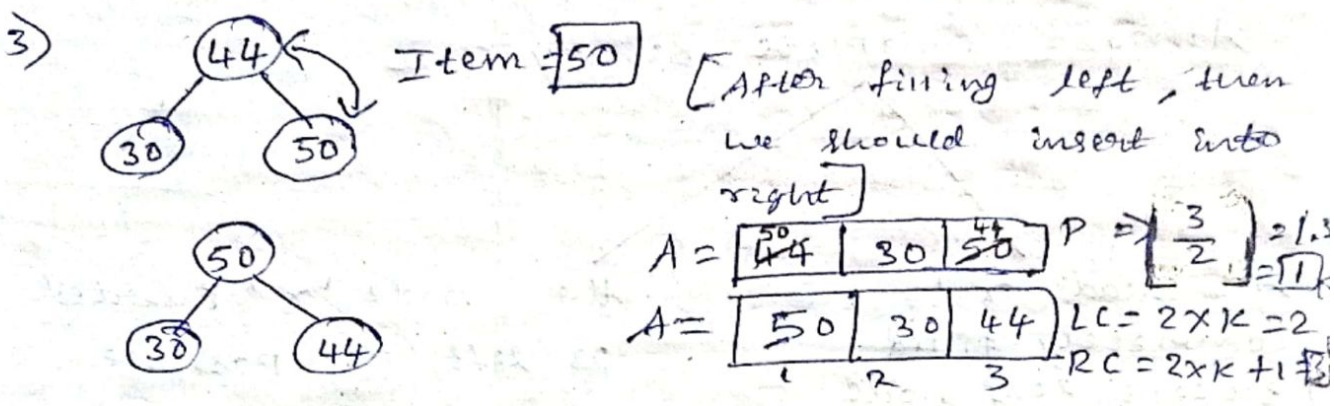 3)
44
Item = 50
30
50
[After filling left, then
we should insert into
right]
50
30
44
A = 44 50 30 50 44
P ⇒ ⌊3/2⌋ = 1.
= 1
A = 50 30 44
1 2 3
LC = 2×K = 2
RC = 2×K+1 = 3